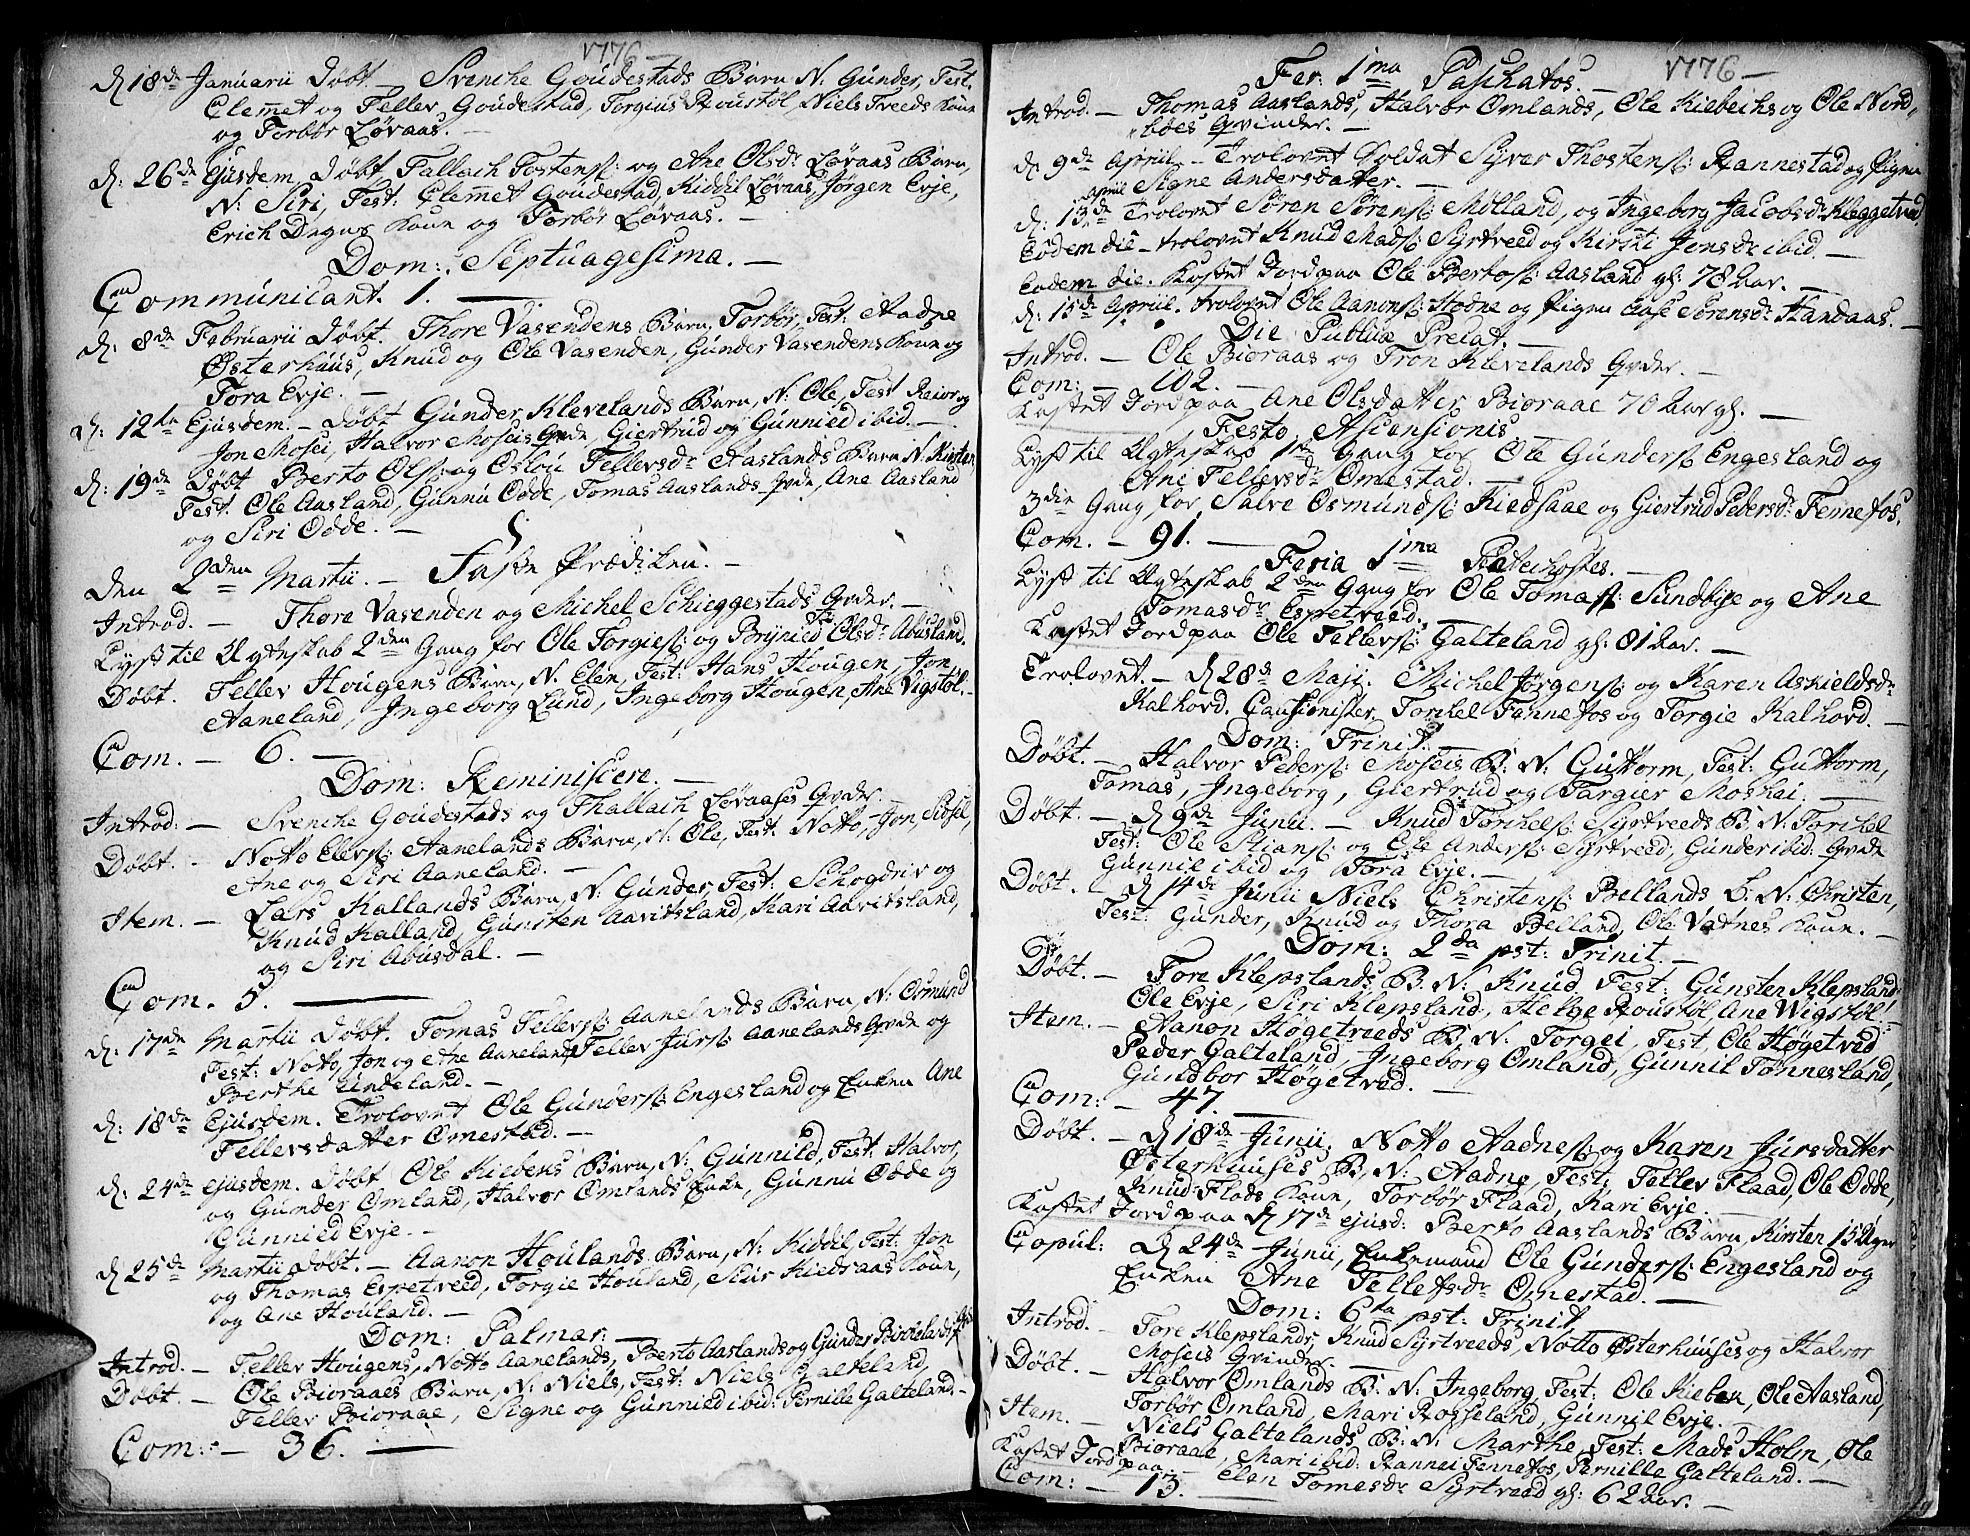 1776 —
d 18de Januarii Døbt — Svenche Goudestads Barn N. Gunder, Test.
Clemet og Tellev Goudestad, Torgius Roustøl, Niels Treeds Kone
og Torbør Løvaas. —
d: 26de Ejusdem, Døbt Tallach Tostens: og Ane Olsdr Løvaas Barn,
N: Siri, Test: Clemet Goudestad, Kiddil Løvaas, Jørgen Evje,
Erich Degns Kone og Torbør Løvaas. —
Dom: Septuagesima. —
Communicant. 1. —
d: 8de Februarii Døbt. Thore Vasendens Barn, Torbør, Test. Aadne
Østerhuus, Knud og Ole Vasenden, Gunder Vasendens Kone og
Tora Evje. —
d: 12te Ejusdem. — Døbt Gunder Klevelands Barn, N: Ole, Test Reior og
Jon Mosei, Halvor Moseis Qvde, Giertrud og Gunnied ibid. —
d: 19de Døbt Berto Ols: og Oslou Tellevsdr Aaslands Barn N. Kirsten,
Test. Ole Aasland, Gunnu Odde, Tomas Aaslands Qvde, Ane Aasland
og Siri Odde. —
den 2den Martii. — Faste Prædiken. —
Introd. — Thore Vasenden og Michel Schieggestads Qvder. —
Lyst til Ægteskab 2den Gang for Ole Torgies: og Brynied Olsdr Abusland.
Døbt. Tellev Hougens Barn, N. Elen, Test: Hans Hougen, Jon
Aaneland, Ingeborg Lund, Ingeborg Hougen, Ane Vigstøl. —
Com. — 6. —
Dom: Reminiscere. —
Introd: — Svenche Goudestads og Thallach Løvaases Qvder.
Døbt. — Notto Elevs: Aanelands Barn, N: Ole, Test. Notto, Jon, Sidsel,
Ane og Siri Aaneland. —
Item. — Lars Kallands Barn, N: Gunder, Test: Schogdriv og
Knud Kalland, Gunsten Aavitsland, Kari Aavitsland,
og Siri Abusdal. —
Com. 5. —
d: 17de Martii Døbt. Tomas Tellevs: Aanelands Barn, N: Osmund
Test: Notto, Jon og Ane Aaneland, Tellev Jurs: Aanelands Qvde og
Berthe Lindeland. —
d: 18de Ejusdem. Trolovet Ole Gunders: Engesland og Enken Ane
Tellevsdatter Omestad. —
d: 24de ejusdem. Døbt Ole Kiebeks Barn, N: Gunnild, Test: Halvor,
og Gunder Omland, Halvor Omlands Enke, Gunnu Odde og
Gunnied Evje. —
d 25de Martii Døbt. — Aanon Houlands Barn, N: Kiddil, Test: Jon
og Thomas Espetveed, Torgie Houland, Siur Kiedsaas Kone,
og Ane Houland. —
Dom: Palmar: —
Introd. — Tellev Hougens, Notto Aanelands, Berto Aaslands og Gunder Birkelands
Døbt. — Ole Bioraaes Barn, N: Niels, Test: Niels Galteland,
Tellev Bioraae, Signe og Gunnied ibid: Pernille Galteland. —
Com: — 36. —
1776 —
Fer: 1ma Paschatos. —
Introd. — Thomas Aaslands, Halvor Omlands, Ole Kiebeks og Ole Nord-
bøes Qvinder. —
d: 9de Apriil, — Trolovet Soldat Syver Thostens: Rannestad og Pigen
Signe Andersdatter. —
d: 13de april Trolovet Søren Sørens: Mølland, og Ingeborg Jacobsdr Kleggetved
Eodem die — trolovet Knud Mads: Syrtveed og Kirsti Jonsdr ibid. —
Eodem die. Kastet Jord paa Ole Bertos: Aasland gl: 78 Aar. —
d: 15de Apriil. trolovet Ole Aanons: Hodne og Pigen Aase Sørensdr Handaas. —
Die Publicæ Precat. —
Introd. — Ole Bioraas og Tron Klevelands Qvder. —
Com: — 102. —
Kastet Jord paa Ane Olsdatter Bioraae 70 Aar gl. —
Festo Ascensionis
Lyst til Ægteskab 1ste Gang for Ole Gunders: Engesland og
Ane Tellevsdr Omestad. —
3die Gang for Salve Osmunds: Kiedsaae og Giertrud Pedersdr Fennefos.
Com. — 91. —
Feria 1ma Pentecostes. —
Lyst til Ægteskab 2den Gang for Ole Tomas: Sundbye og Ane
Tomasdr Espetveed. —
Kastet Jord paa Ole Tellevs: Galteland gl: 81 Aar. —
Trolovet. — d 28de Maji. Michel Jørgens: og Karen Askieldsdr
Kalhovd. Cautionister Torchel Fannefos og Torgie Kalhovd. —
Dom: Trinit: —
Døbt. — Halvor Peders: Moseis B: N: Guttorm, Test: Guttorm,
Tomas, Ingeborg, Giertrud og Targier Moshei. —
Døbt. — d 9de Junii. — Knud Torchels: Syrtveeds B: N: Torchel
Test: Ole Stians: og Ole Anders: Syrtveed, Gunder ibid: Qvde
Gunnil ibid og Tora Evje. —
Døbt. — d 14de Junii Niels Christens: Bellands B. N: Christen,
Test: Gunder, Knud og Thora Belland, Ole Vatnes Kone. —
Dom: 2da pst: Trinit. —
Døbt. — Tore Klepslands B: N: Knud, Test: Gunsten Klepsland,
Ole Evje, Siri Klepsland, Helge Roustøl, Ane Wigstøl. —
Item. — Aanon Høgetveeds B: N: Torgei, Test, Ole Høgetved
Peder Galteland, Ingeborg Omland, Gunnil Tønnesland,
Gundbor Høgetved. —
Com: — 47. —
Døbt. — d 18de Junii, Notto Aadnes: og Karen Jursdatter
Østerhuuses B: N: Aadne, Test: Tellev Flaad, Ole Odde,
Knud Flads Kone, Torbør Flaad, Kari Evje. —
Kastet Jord paa d 17de ejusd: Berto Aaslands Barn, Kirsten 15 Uger
Copul: d 24de Junii, Enkemand Ole Gunders: Engesland og
Enken Ane Tellefsdr Omestad. —
Dom: 6ta pst: Trinit.
Introd. — Tore Klepslands, Knud Syrtveeds, Notto Østerhuuses og Halvor
Moseis Qvinder. —
Døbt. — Halvor Omlands B: N: Ingeborg, Test: Ole Kieben, Ole Aasland,
Torbør Omland, Mari Rosseland, Gunnil Evje. —
Item. — Niels Galtelands B: N: Marthe, Test: Mads Holm, Ole
Bioraae, Mari ibid: Rannei Fennefos, Pernille Galteland. —
Kastet Jord paa — Elen Tomesdr Syrtveed gl: 62 Aar. —
Com: — 13. —